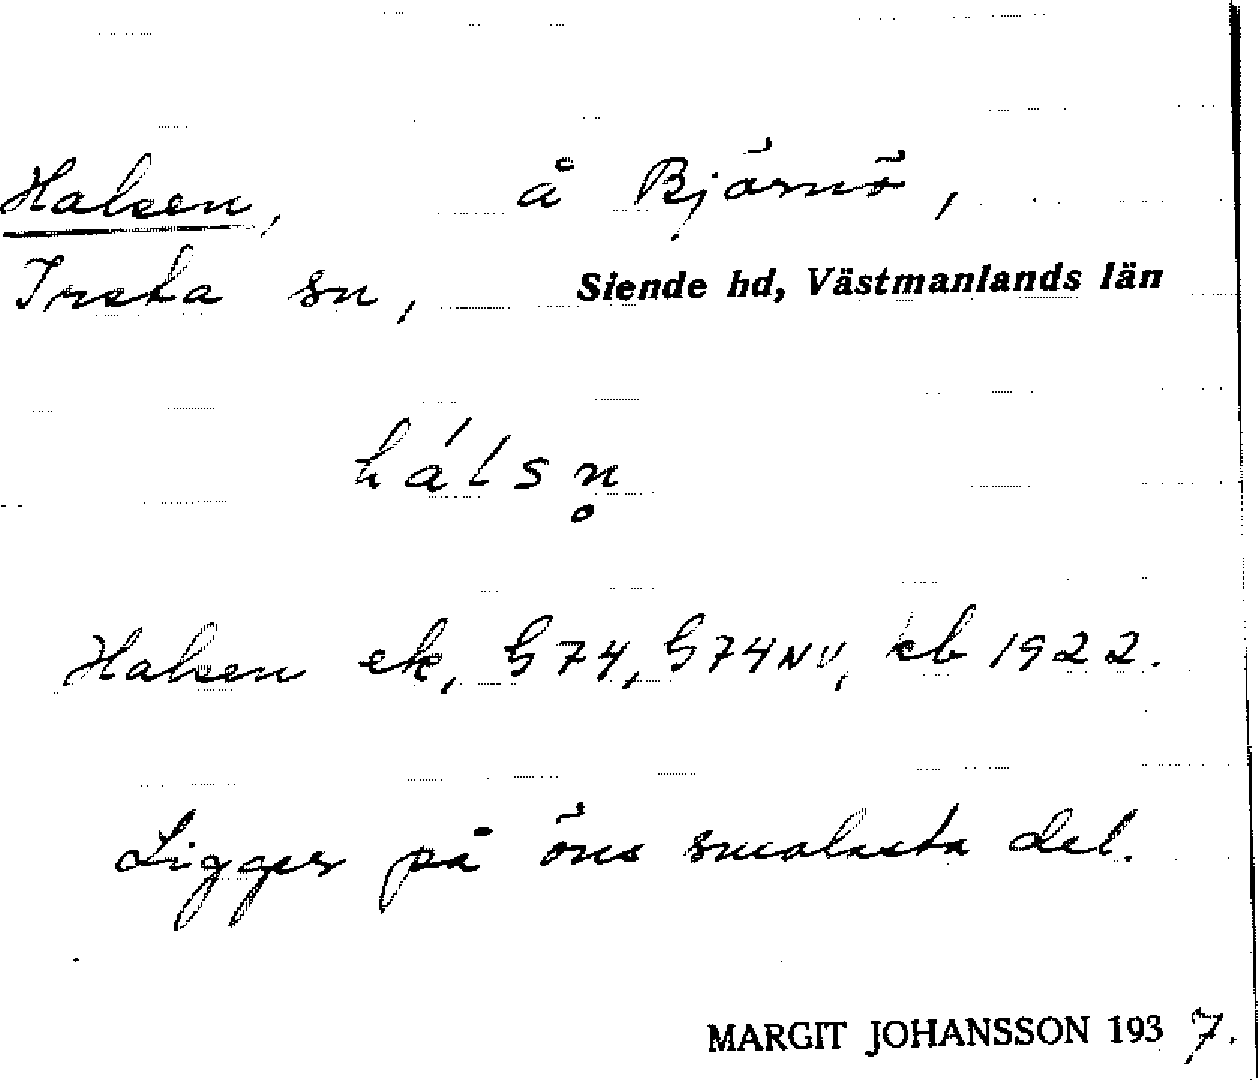 Halsen, å Björnö,
Irsta sn, Siende hd, Västmanlands län
hálsn̥
Halsen ek, G74, G74NV, eb 1922.
Ligger på öns smalasta del.
MARGIT JOHANSSON 1937.